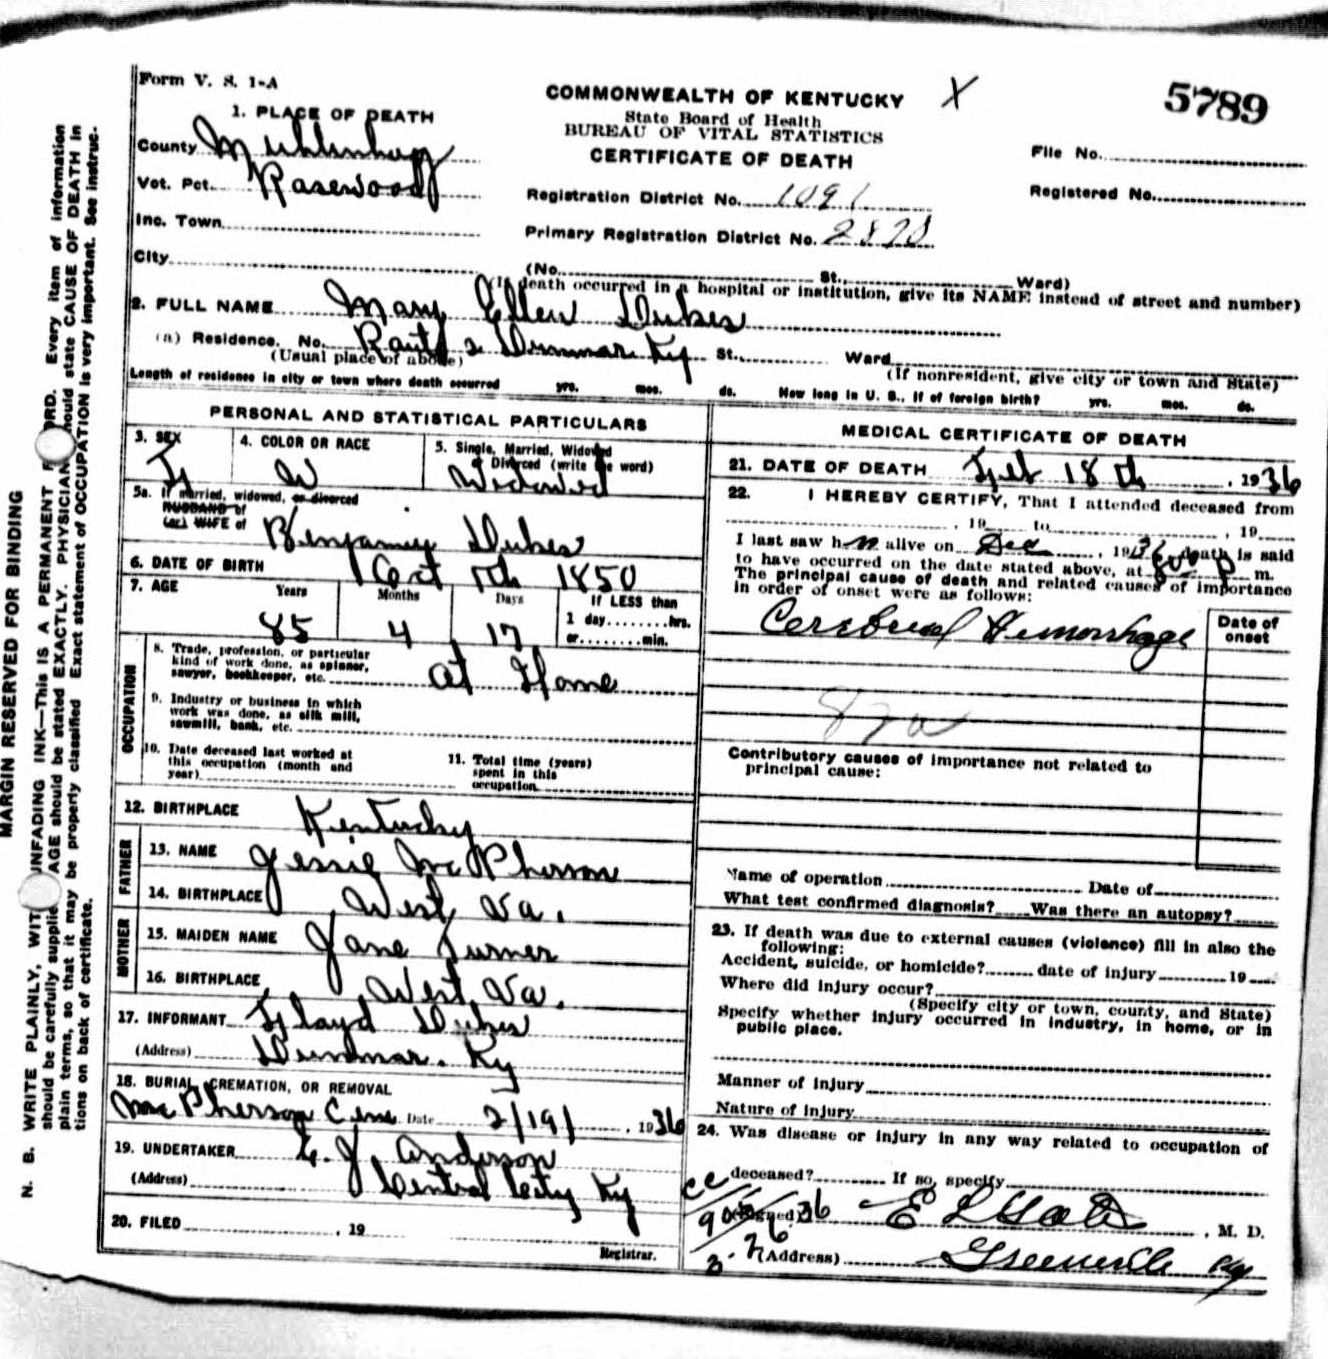 Form V. S. 1-A
COMMONWEALTH OF KENTUCKY X
5789
State Board of Health
BUREAU OF VITAL STATISTICS
CERTIFICATE OF DEATH
1. PLACE OF DEATH
County Muhlenberg
Vot. Pct. Rosewood
Inc. Town
City
File No.
Registered No.
Registration District No. 1091
Primary Registration District No.
(No. St., Ward)
(If death occurred in a hospital or institution, give its NAME instead of street and number)
2. FULL NAME Mary Ellen Dukes
(a) Residence. No. Route 2 Dunmor Ky St., Ward
(Usual place of abode)
(If nonresident, give city or town and State)
Length of residence in city or town where death occurred yrs. mos. ds. How long in U. S., if of foreign birth? yrs. mos. ds.
PERSONAL AND STATISTICAL PARTICULARS
3. SEX F
4. COLOR OR RACE W
5. Single, Married, Widowed or Divorced (write the word) Widowed
5a. If married, widowed, or divorced
HUSBAND of
(or) WIFE of Benjamin Dukes
6. DATE OF BIRTH Oct 1850
7. AGE Years Months Days If LESS than
1 day........hrs.
85 4 17 or........min.
OCCUPATION
8. Trade, profession, or particular
kind of work done, as spinner,
sawyer, bookkeeper, etc. at Home
9. Industry or business in which
work was done, as silk mill,
sawmill, bank, etc.
10. Date deceased last worked at
this occupation (month and
year)
11. Total time (years)
spent in this
occupation
12. BIRTHPLACE Kentucky
FATHER
13. NAME Jessie McPherson
14. BIRTHPLACE West Va.
MOTHER
15. MAIDEN NAME Jane Turner
16. BIRTHPLACE West Va.
17. INFORMANT Floyd Dukes
(Address) Dunmor. Ky
18. BURIAL, CREMATION, OR REMOVAL
McPherson Cem Date 2/19/, 1936
19. UNDERTAKER E. J. Anderson
(Address) Central City Ky
20. FILED , 19
Registrar.
MEDICAL CERTIFICATE OF DEATH
21. DATE OF DEATH Feb 18th, 1936
22. I HEREBY CERTIFY, That I attended deceased from
, 19 to , 19
I last saw h alive on Dec , 19 , death is said
to have occurred on the date stated above, at 800 p m.
The principal cause of death and related causes of importance
in order of onset were as follows:
Date of
onset
Cerebral Hemorrhage
82a
Contributory causes of importance not related to
principal cause:
Name of operation Date of
What test confirmed diagnosis? Was there an autopsy?
23. If death was due to external causes (violence) fill in also the
following:
Accident, suicide, or homicide? date of injury 19
Where did injury occur?
(Specify city or town, county, and State)
Specify whether injury occurred in industry, in home, or in
public place.
Manner of injury
Nature of injury
24. Was disease or injury in any way related to occupation of
deceased? If so, specify
(Signed) , M. D.
(Address) Greenville Ky
MARGIN RESERVED FOR BINDING
N. B. WRITE PLAINLY, WITH UNFADING INK—THIS IS A PERMANENT RECORD. Every item of information
should be carefully supplied. AGE should be stated EXACTLY. PHYSICIANS should state CAUSE OF DEATH in
plain terms, so that it may be properly classified. Exact statement of OCCUPATION is very important. See instruc-
tions on back of certificate.